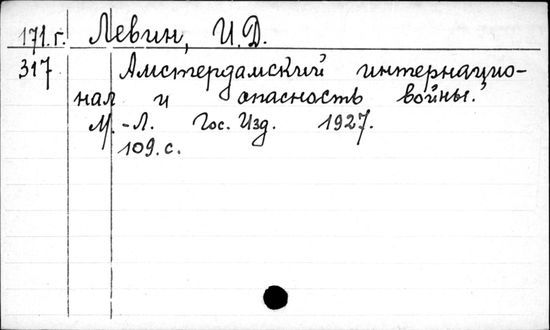 171.г. Левин, И.Д.
317 Амстердамский интернацио-
нал и опасность войны.
М.-Л. Гос. Изд. 1927.
109.с.